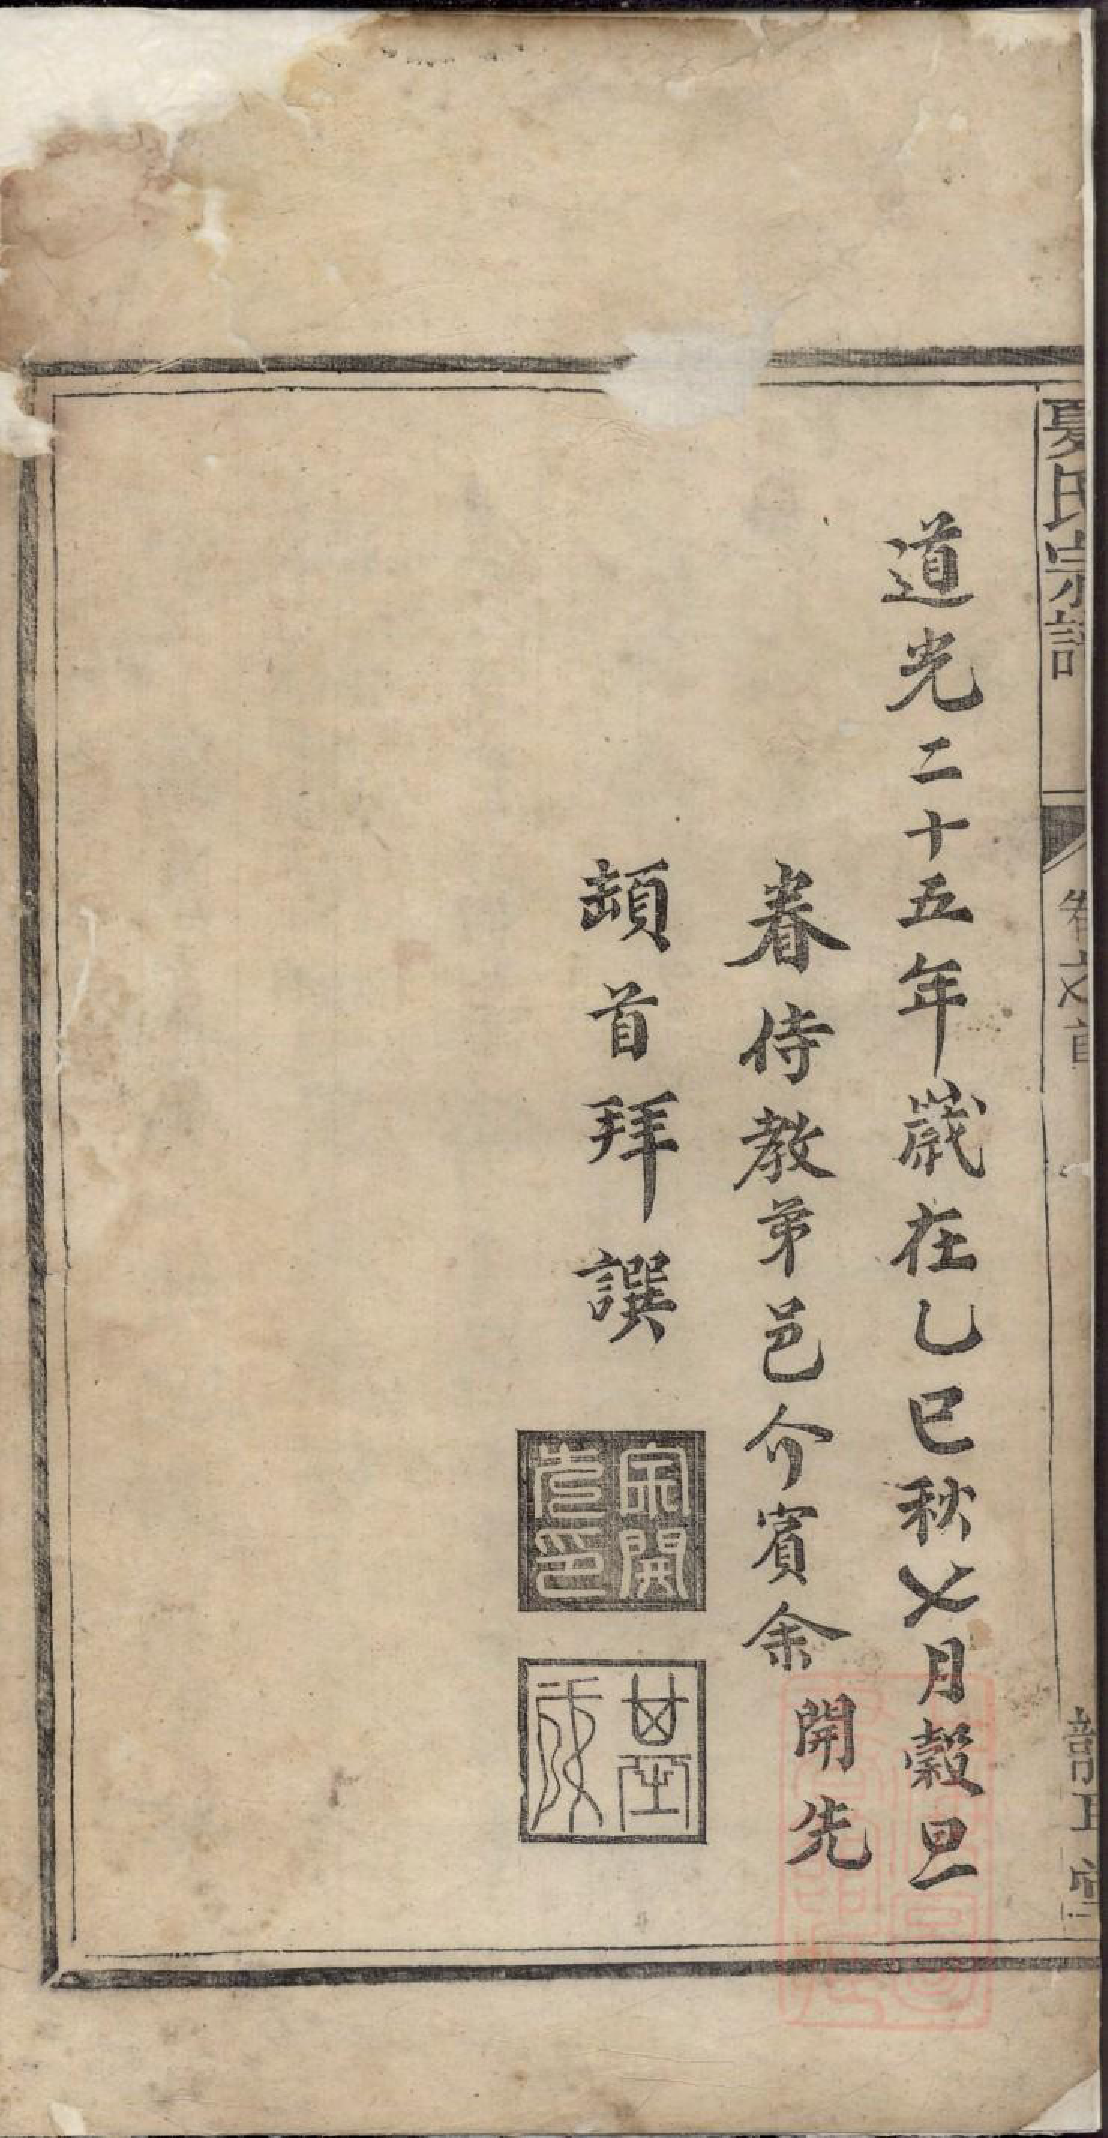 夏氏宗譜
卷之首
道光二十五年歲在乙巳秋七月穀旦
眷侍教弟邑介賓余開先
頓首拜譔
余開
先印
基
成